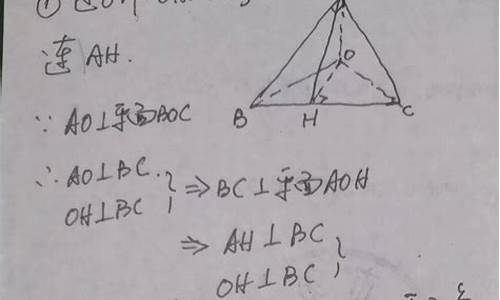 连AH.
∵ AO⊥平面BOC
∴ AO⊥BC
OH⊥BC } ⇒ BC⊥平面AOH
⇒ AH⊥BC
OH⊥BC }
O
B
H
C